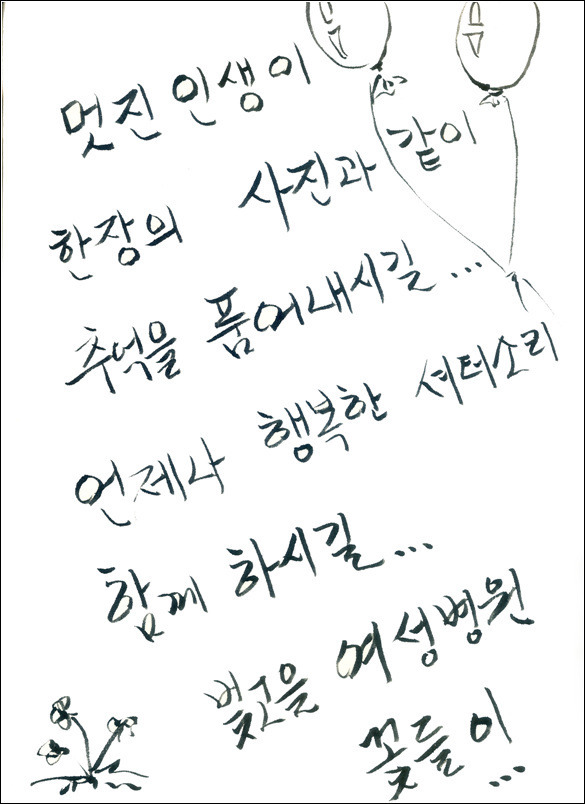 멋진 인생이
한장의 사진과 같이
추억을 품어내시길...
언제나 행복한 셔터소리
함께 하시길...
빛고을 여성병원
꽃들이...